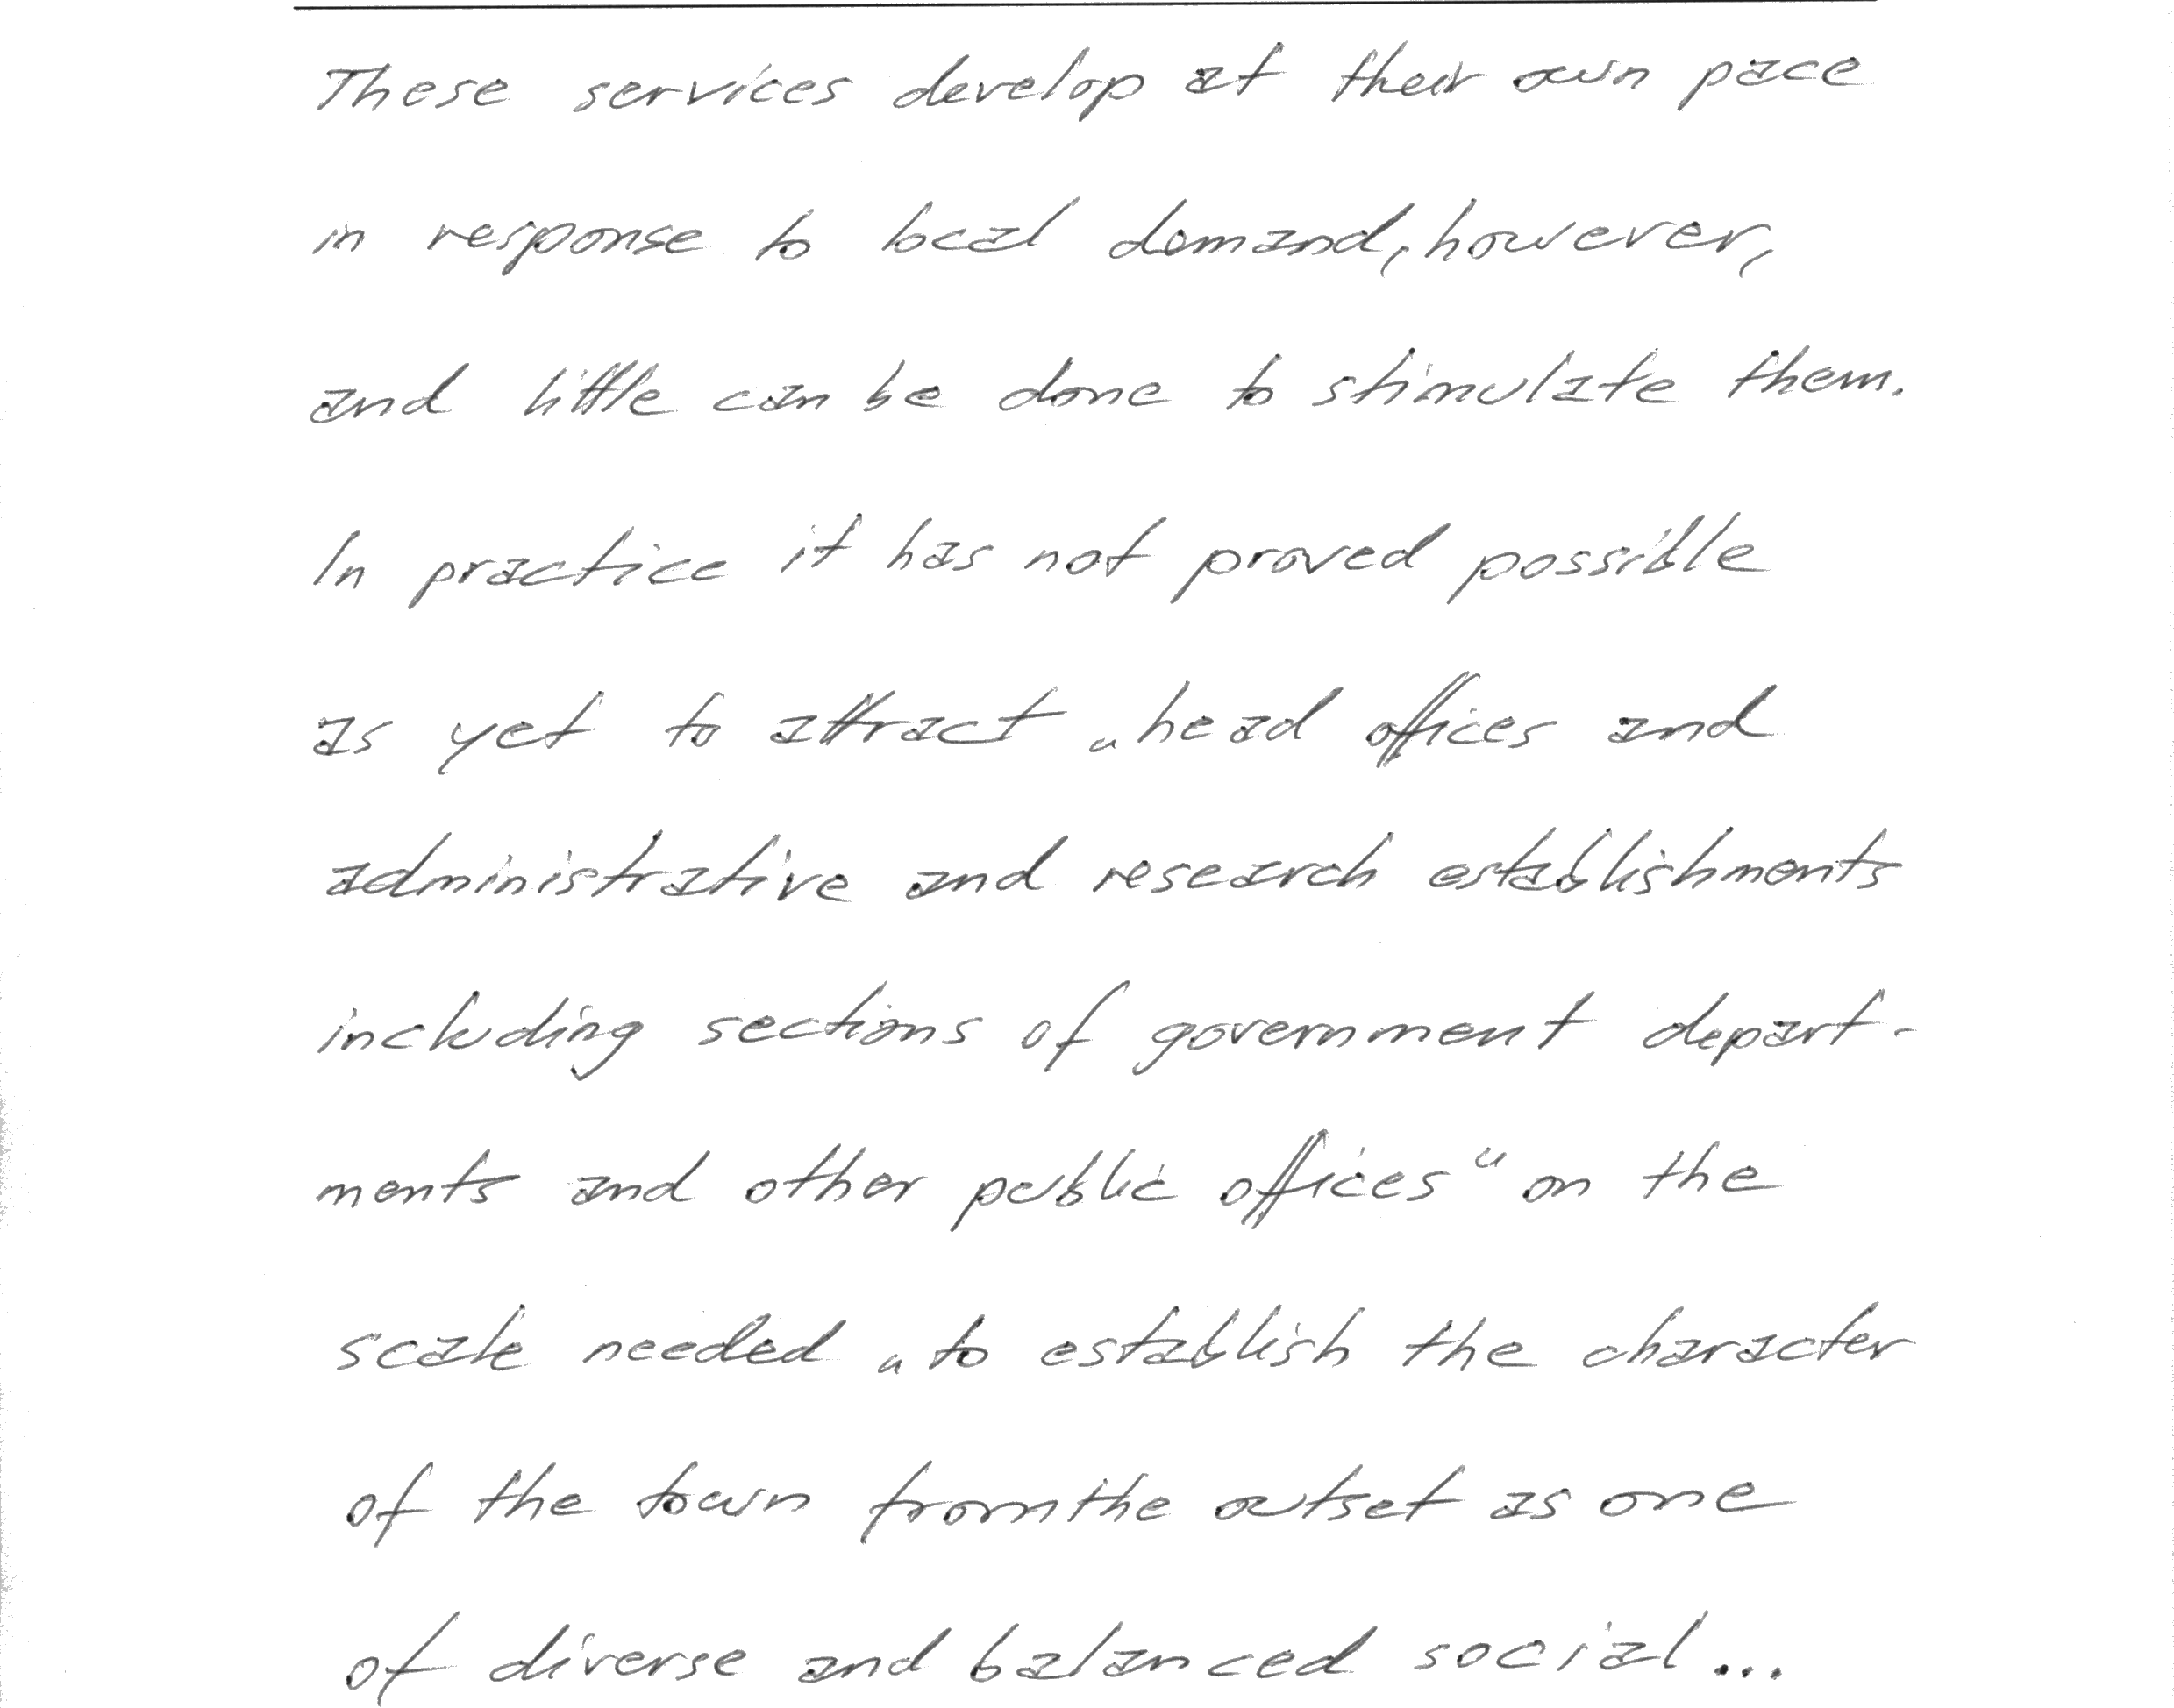 These services develop at their own pace
in response to local demand, however,
and little can be done to stimulate them.
In practice it has not proved possible
as yet to attract „head offices and
administrative and research establishments
including sections of government depart-
ments and other public offices“ on the
scale needed „to establish the character
of the town from the outset as one
of diverse and balanced social...